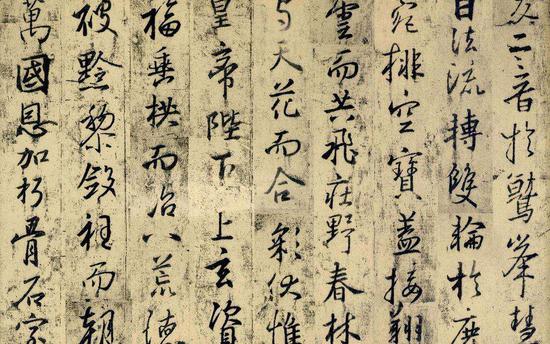 交二音於鷲峯慧
日法流轉雙輪於鹿
苑排空寶蓋接翔
雲而共飛莊野春林
与天花而合彩伏惟
皇帝陛下上玄資
福垂拱而治八荒德
被黔黎斂衽而朝
萬國恩加朽骨石室